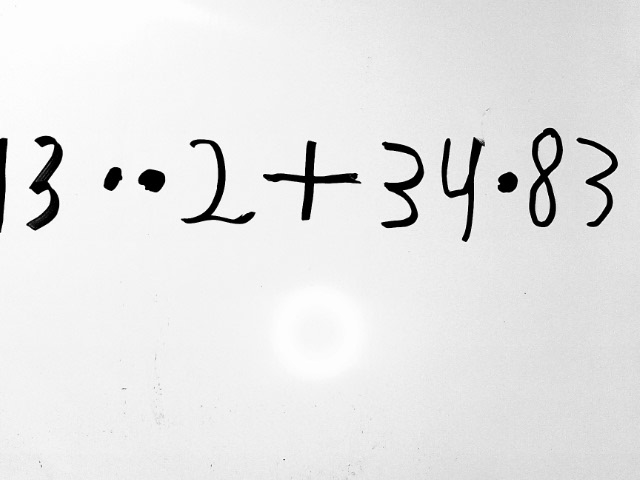 13··2+34·83